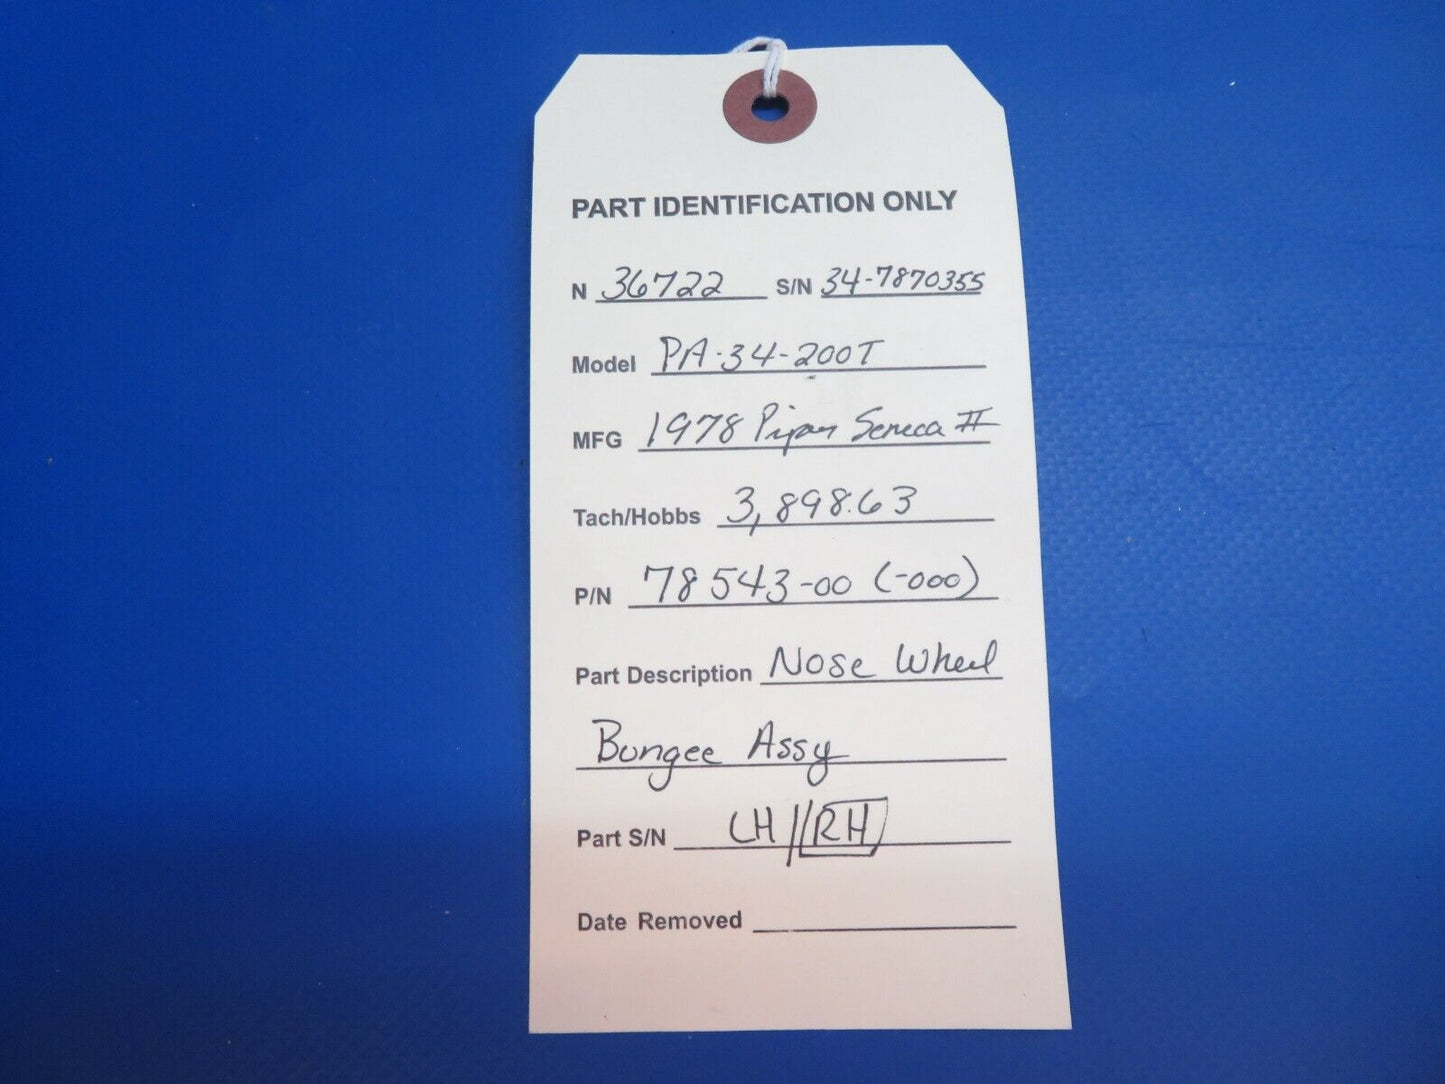 PART IDENTIFICATION ONLY
N 36722 S/N 34-7870355
Model PA-34-200T
MFG 1978 Piper Seneca II
Tach/Hobbs 3,898.63
P/N 78543-00 (-000)
Part Description Nose Wheel
Bungee Assy
Part S/N LH//RH
Date Removed